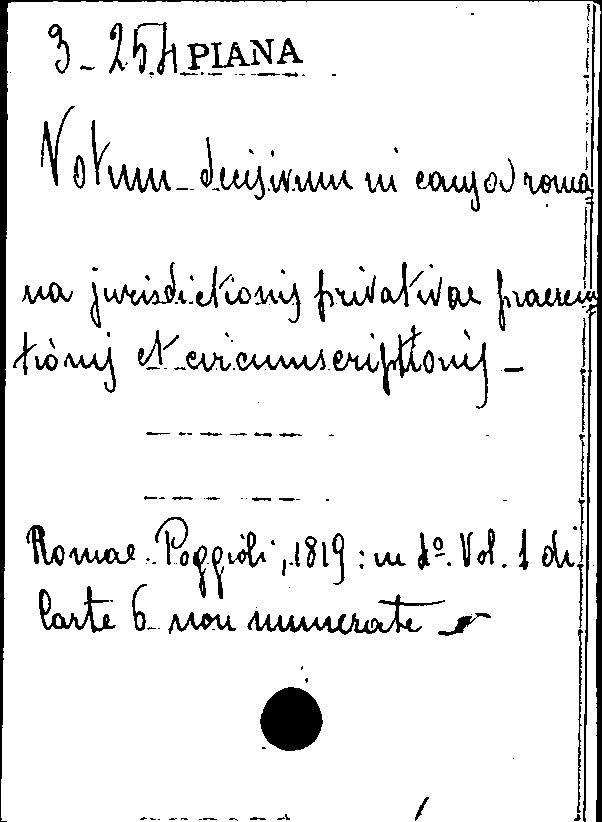 3-254 PIANA
Votum decisivum in causa roma
na jurisdictionis privativae praeem
tionis et circumscriptionis -
Romae. Poggioli, 1819: in 4º. Vol. 1 di
Carte 6 non numerate